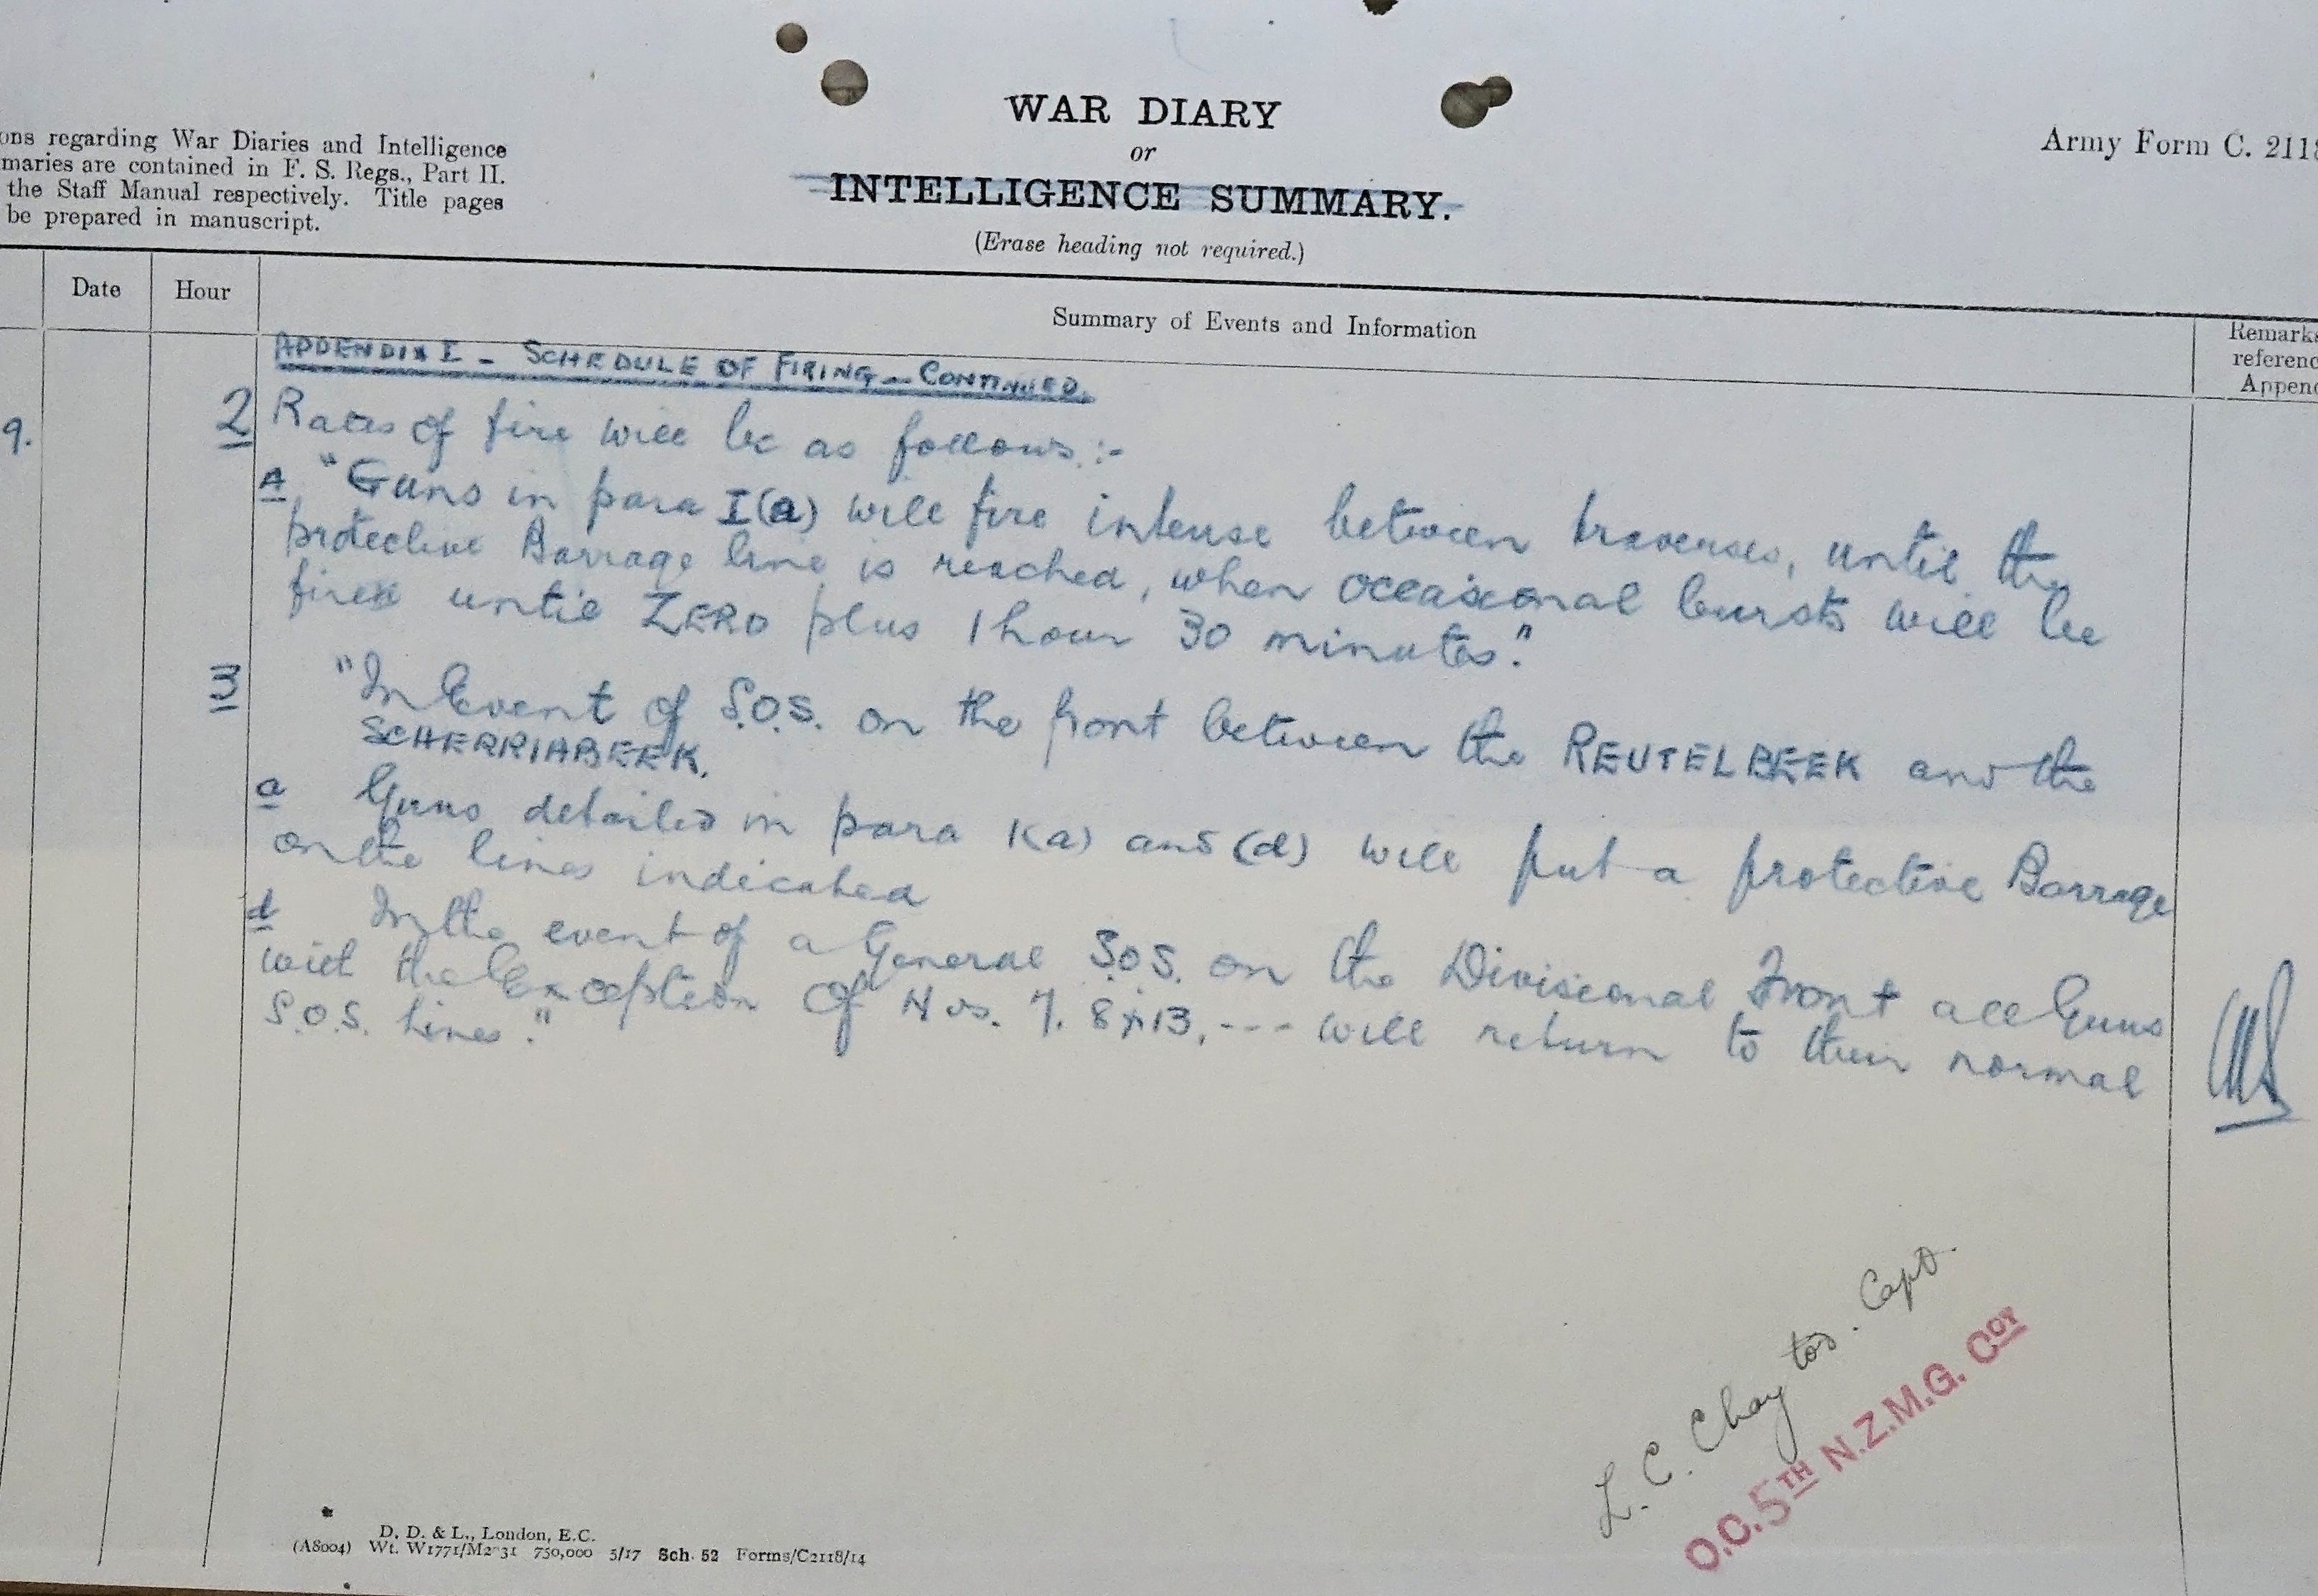 WAR DIARY
or
INTELLIGENCE SUMMARY.
(Erase heading not required.)
Army Form C. 2118
ons regarding War Diaries and Intelligence
maries are contained in F. S. Regs., Part II.
the Staff Manual respectively. Title pages
be prepared in manuscript.
Date
Hour
Summary of Events and Information
Remarks
referenc
Appen
APPENDIX I - SCHEDULE OF FIRING - CONTINUED.
9.
2 Rates of fire will be as follows:-
A "Guns in para I(a) will fire intense between traverses, until the
protective Barrage line is reached, when occasional bursts will be
fired until ZERO plus 1 hour 30 minutes."
3 "In Event of S.O.S. on the front between the REUTELBEEK and the
SCHERRIABEEK.
a Guns detailed in para 1(a) and (d) will put a protective Barrage
on the lines indicated
d In the event of a General S.O.S. on the Divisional Front all Guns
with the Exception of Nos. 7. 8 & 13, --- will return to their normal
S.O.S. lines."
L. C. Chaytor. Capt.
O.C. 5TH N.Z.M.G. COY
D. D. & L., London, E.C.
(A8004) Wt. W1771/M2031 750,000 5/17 Sch. 52 Forms/C2118/14